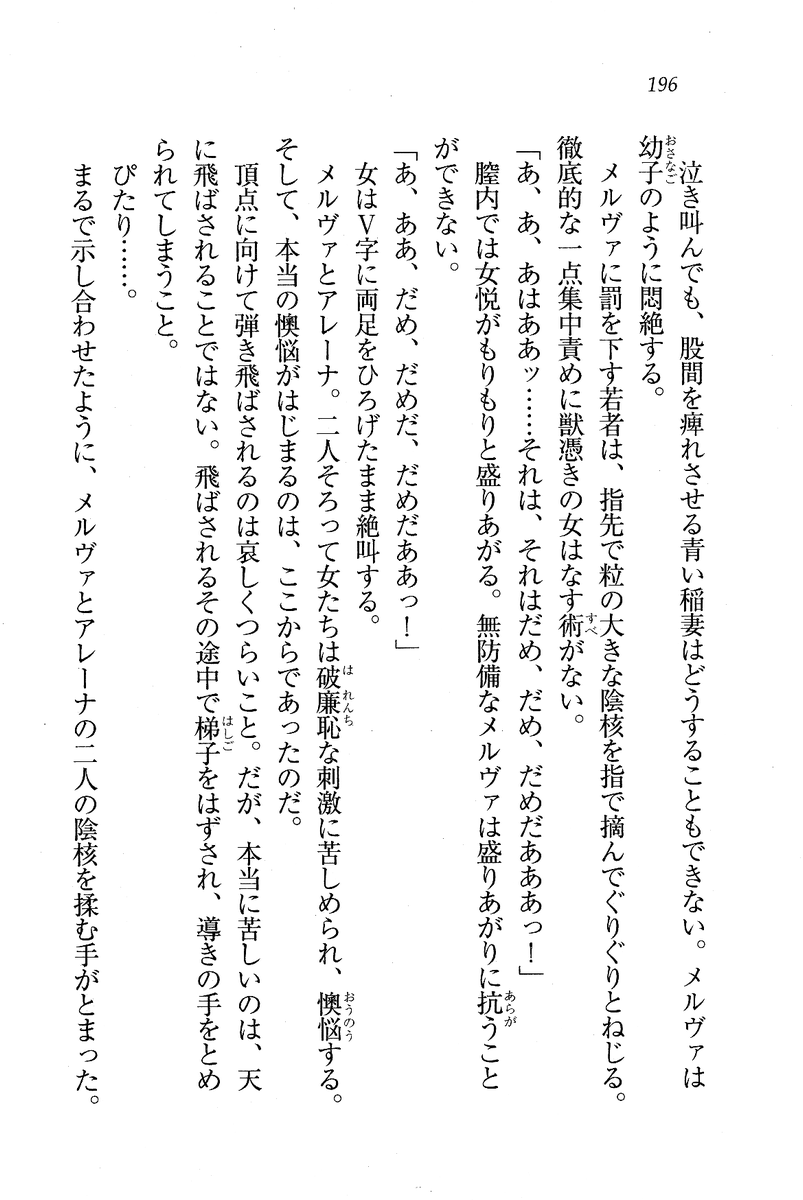 196
泣き叫んでも、股間を痺れさせる青い稲妻はどうすることもできない。メルヴァは
幼子のように悶絶する。
メルヴァに罰を下す若者は、指先で粒の大きな陰核を指で摘んでぐりぐりとねじる。
徹底的な一点集中責めに獣憑きの女はなす術がない。
「あ、あ、あはああッ……それは、それはだめ、だめ、だめだあああっ！」
膣内では女悦がもりもりと盛りあがる。無防備なメルヴァは盛りあがりに抗うこと
ができない。
「あ、ああ、だめ、だめだ、だめだああっ！」
女はV字に両足をひろげたまま絶叫する。
メルヴァとアレーナ。二人そろって女たちは破廉恥な刺激に苦しめられ、懊悩する。
そして、本当の懊悩がはじまるのは、ここからであったのだ。
頂点に向けて弾き飛ばされるのは哀しくつらいこと。だが、本当に苦しいのは、天
に飛ばされることではない。飛ばされるその途中で梯子をはずされ、導きの手をとめ
られてしまうこと。
ぴたり……。
まるで示し合わせたように、メルヴァとアレーナの二人の陰核を揉む手がとまった。